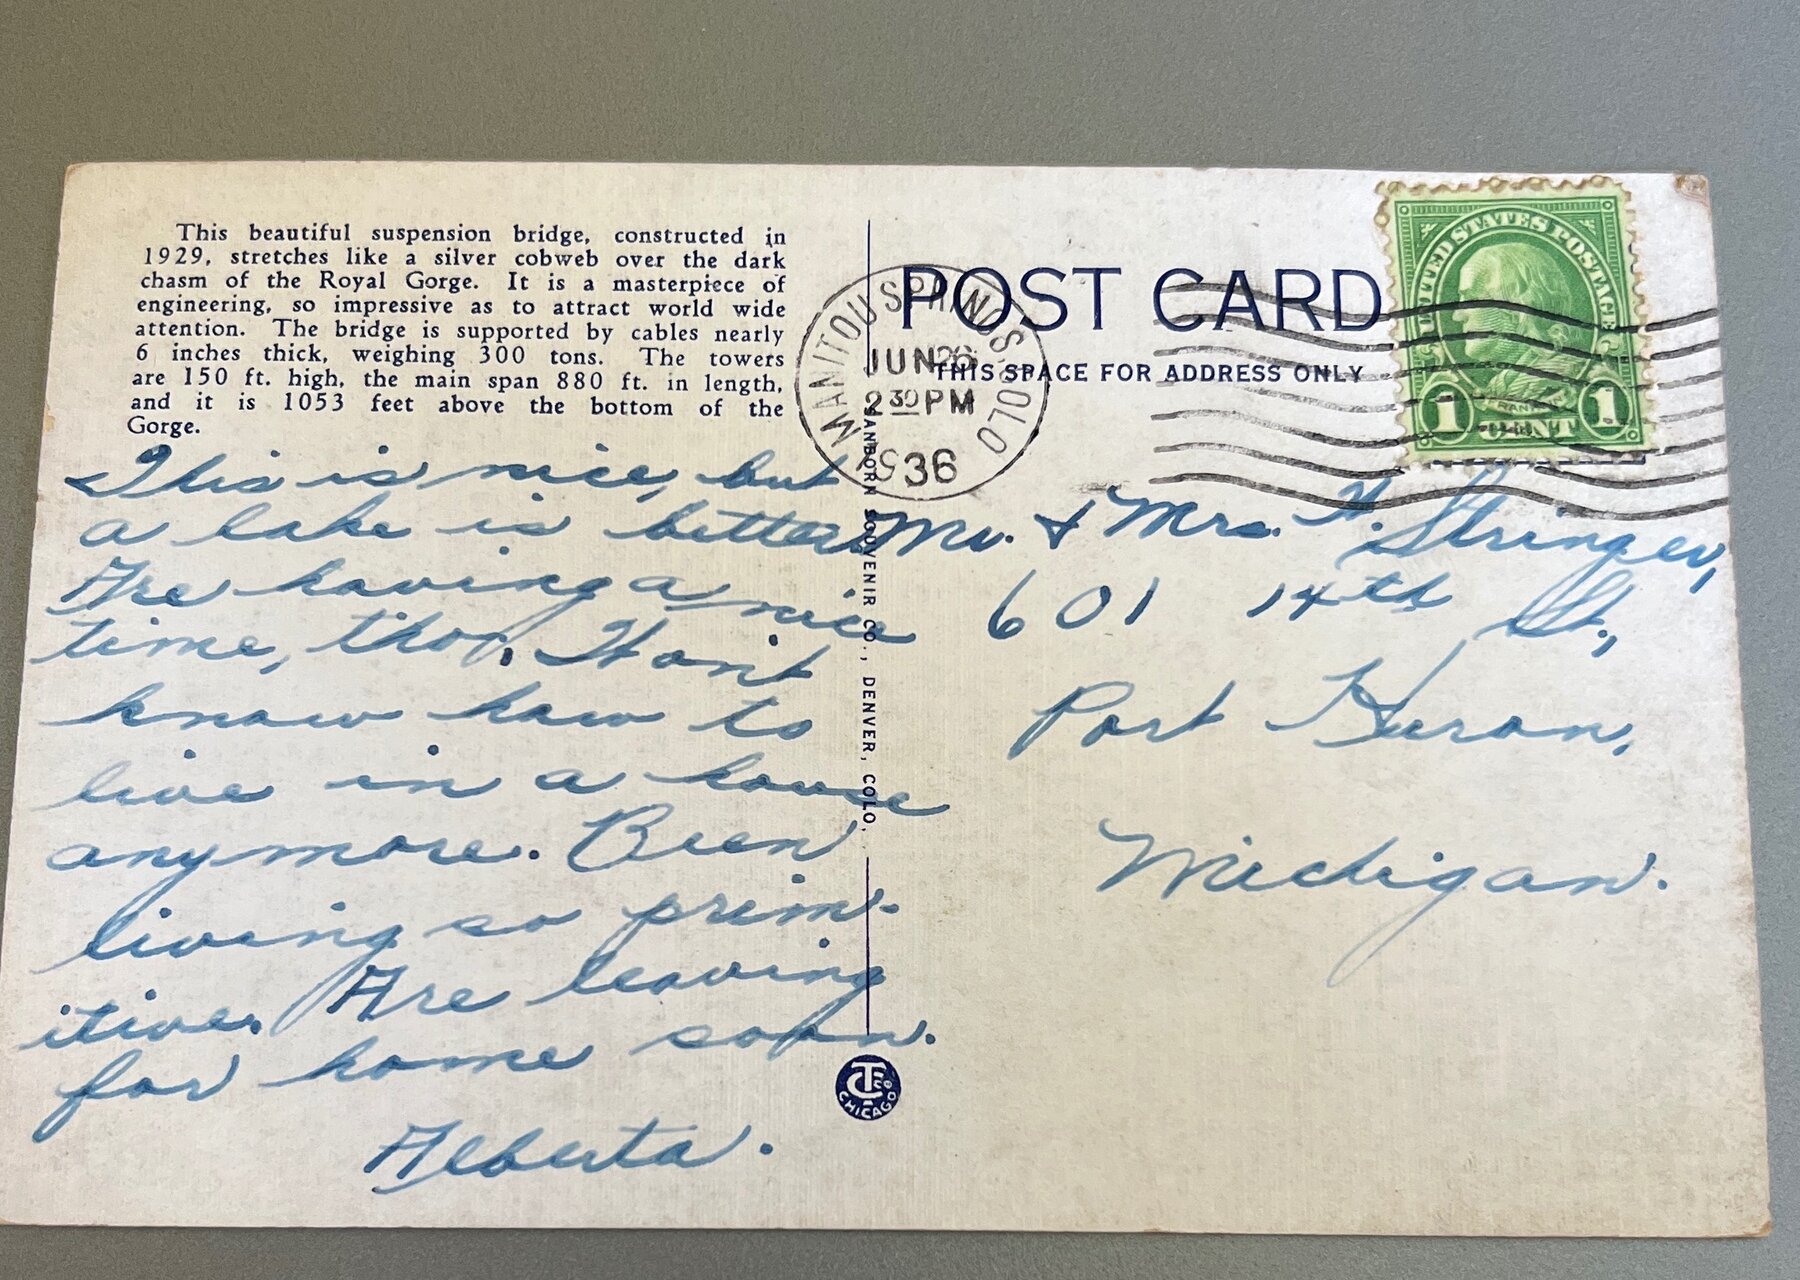 This beautiful suspension bridge, constructed in
1929, stretches like a silver cobweb over the dark
chasm of the Royal Gorge. It is a masterpiece of
engineering, so impressive as to attract world wide
attention. The bridge is supported by cables nearly
6 inches thick, weighing 300 tons. The towers
are 150 ft. high, the main span 880 ft. in length,
and it is 1053 feet above the bottom of the
Gorge.
This is nice, but
a lake is better.
Are having a nice
time, tho. Won't
know how to
live in a house
anymore. Been
living so prim-
itive. Are leaving
for home soon.
Alberta.
SANBORN SOUVENIR CO., DENVER, COLO.
TCCO
CHICAGO
MANITOU SPRINGS, COLO
JUN 26
2 30 PM
1936
POST CARD
THIS SPACE FOR ADDRESS ONLY
UNITED STATES POSTAGE
FRANKLIN
1 CENT 1
Mr. & Mrs. H. Stringer,
601 14th St.,
Port Huron,
Michigan.